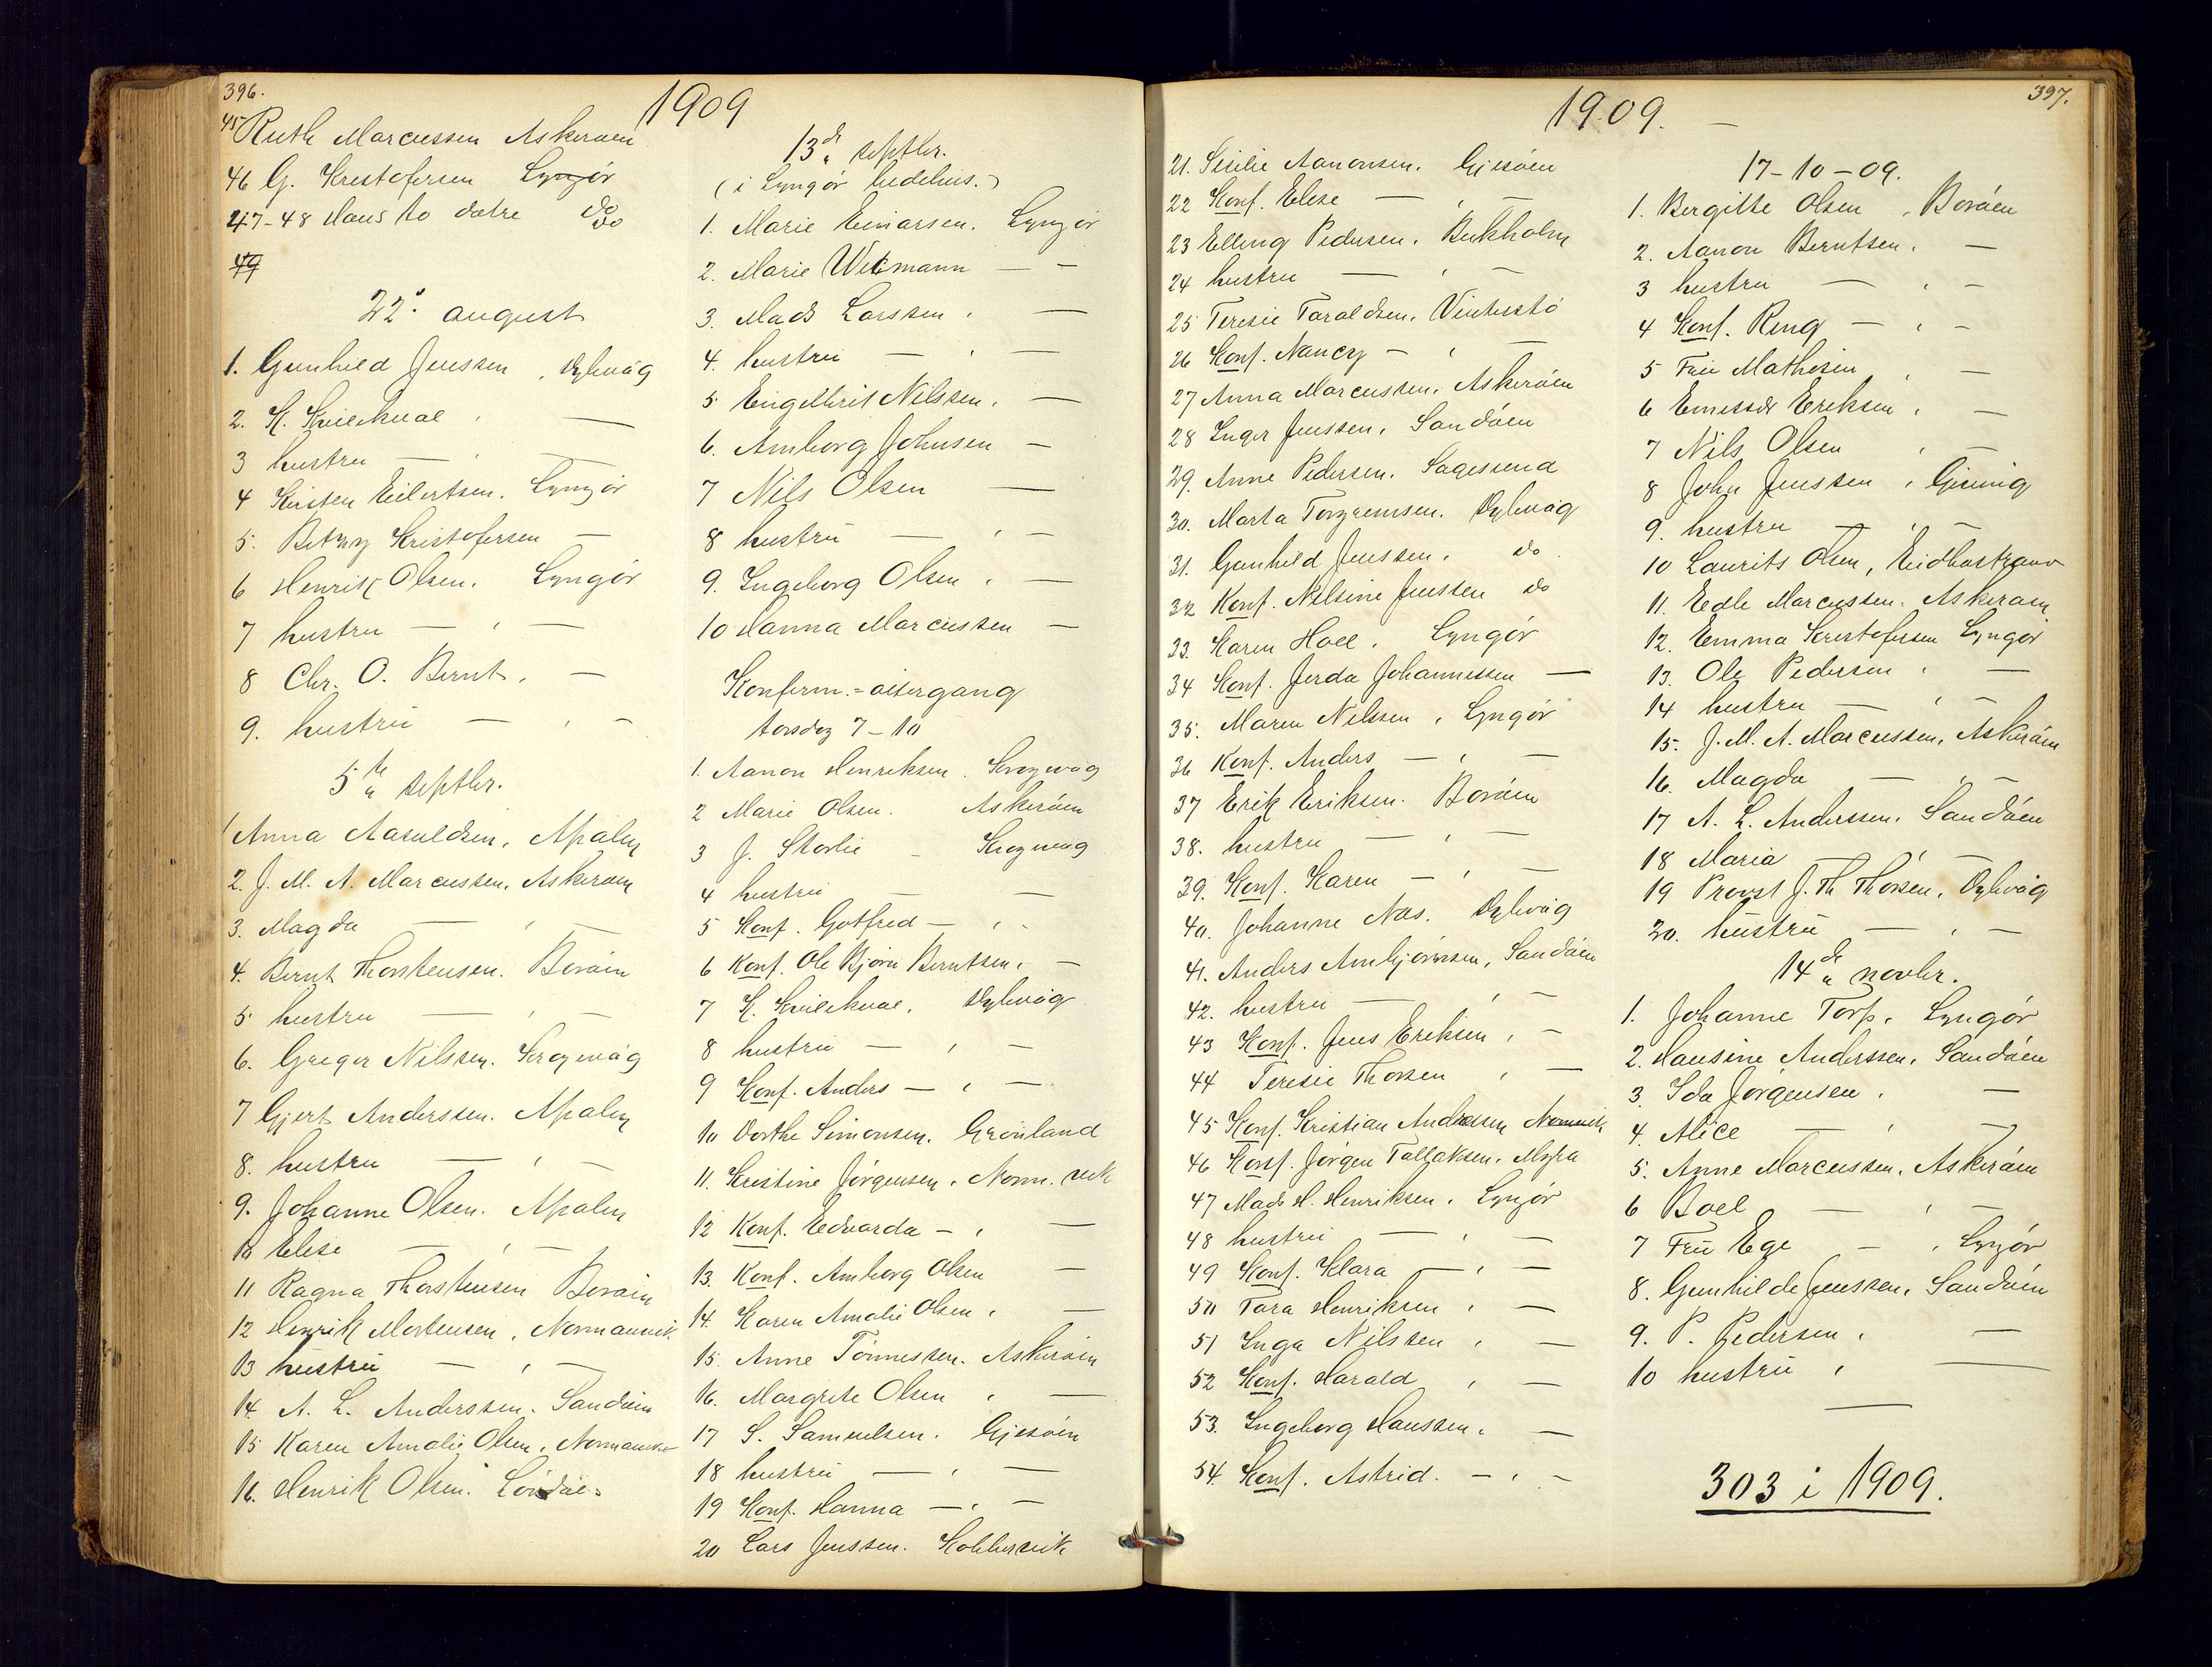 396.
1909
45 Ruth Marcussen Askerøen
46 G. Kristofersen Lyngør
47-48 Hans to døtre do do
49
22de august
1. Gunhild Jenssen, Dybvåg
2. K. Kvilekval, —
3 hustru — , —
4 Kirsten Eilertsen. Lyngør
5. Betzy Kristofersen —
6 Henrik Olsen. Lyngør
7 hustru — , —
8 Chr. O. Bernt, —
9. hustru — , —
5te septbr.
1 Anna Aasuldsen, Apalen
2. J. M. A. Marcussen, Askerøen
3. Magda — , —
4. Bernt Thorstensen. Borøen
5 hustru — , —
6. Greger Nilssen. Krogevåg
7 Gjert Anderssen. Apalen
8. hustru — , —
9. Johanne Olsen. Apalen
10 Elise — , —
11 Ragna Thorstensen Borøen
12 Henrik Mortensen, Normannvik
13 hustru — , —
14. A. L. Anderssen. Sandøen
15 Karen Amalie Olsen,
16. Henrik Olsen.
13de septbr.
(i Lyngør bedehus.)
1. Marie Einarsen. Lyngør
2. Marie Witmann — —
3. Mads Larssen, —
4. hustru — , —
5 Engelbrit Nilssen, —
6. Amborg Johnsen —
7 Nils Olsen —
8 hustru — , —
9. Ingeborg Olsen, —
10 Hanna Marcussen —
Konfirm.=altergang
torsdag 7-10
1. Aanon Henriksen. Krogevåg
2 Marie Olsen. Askerøen
3 J. Storlie — Krogevåg
4 hustru — —
5 Konf. Gotfred — , -
6 Konf. Ole Bjørn Berntsen, —
7 K. Kvilekval, Dybvåg
8 hustru — , —
9 Konf. Anders — , —
10 Dorthe Simonsen. Grønland
11. Kristine Jørgensen, Norm. vik
12 Konf. Edvarda — , —
13. Konf. Amborg Olsen —
14. Karen Amalie Olsen, —
15. Anne Tönnessen. Askerøen
16. Margrete Olsen , —
17 S. Samuelsen. Gjesøen
18 hustru — , —
19 Konf. Hanna — , —
20 Lars Jenssen. Kobbervik
397.
1909. —
21. Sesilie Aanonsen. Gjesøen
22 Konf. Elise — , —
23 Elling Pedersen. Bukholm
24 hustru — , —
25 Teresie Taraldsen. Vinterstø
26 Konf. Nancy — , —
27 Anna Marcussen. Askerøen
28 Inger Jenssen. Sandøen
29. Anne Pedersen. Sagesund
30. Marta Torgrimsen. Dybvåg
31. Gunhild Jenssen. do.
32 Konf. Nilsine Jenssen do
33. Karen Holl. Lyngør
34 Konf. Jerda Johannessen —
35. Maren Nilssen, Lyngør
36 Konf. Anders — , —
37 Erik Eriksen. Borøen
38. hustru — , —
39. Konf. Karen — , —
40. Johanne Næs. Dybvåg
41. Anders Ambjørnsen, Sandøen
42. hustru — , —
43 Konf. Jens Eriksen , —
44 Teresie Thorsen , —
45 Konf. Kristian Andersen
46 Konf. Jørgen Tallaksen. Myra
47 Mads H. Henriksen. Lyngør
48 hustru — , —
49 Konf. Klara — , —
50 Tora Henriksen , —
51 Inga Nilssen , —
52 Konf. Harald , —
53. Ingeborg Hanssen. —
54. Konf. Astrid. — , —
17-10-09.
1. Bergitte Olsen, Borøen
2. Aanon Berntsen, —
3 hustru — , —
4 Konf. Ring — , —
5 Fru Mathesen , —
6 Eriksen, —
7 Nils Olsen , —
8 John Jenssen, Gjeving
9. hustru — , —
10 Laurits Olsen, Eidbostrand
11. Edle Marcussen. Askerøen
12. Emma Kristofersen Lyngør
13. Ole Pedersen , —
14 hustru — , —
15. J. M. A. Marcussen, Askerøen
16. Magda — , —
17 A. L. Anderssen. Sandøen
18 Maria — , —
19 Provst J. Th. Thorsen, Dybvåg
20. hustru — , —
14de novbr.
1. Johanne Torp. Lyngør
2. Hansine Anderssen, Sandøen
3. Ida Jørgensen. —
4. Alice — , —
5. Anne Marcussen. Askerøen
6 Boel — , —
7 Fru Ege — , Lyngør
8. Gunhilde Jenssen, Sandøen
9. P. Pedersen , —
10 hustru , —
303 i 1909.